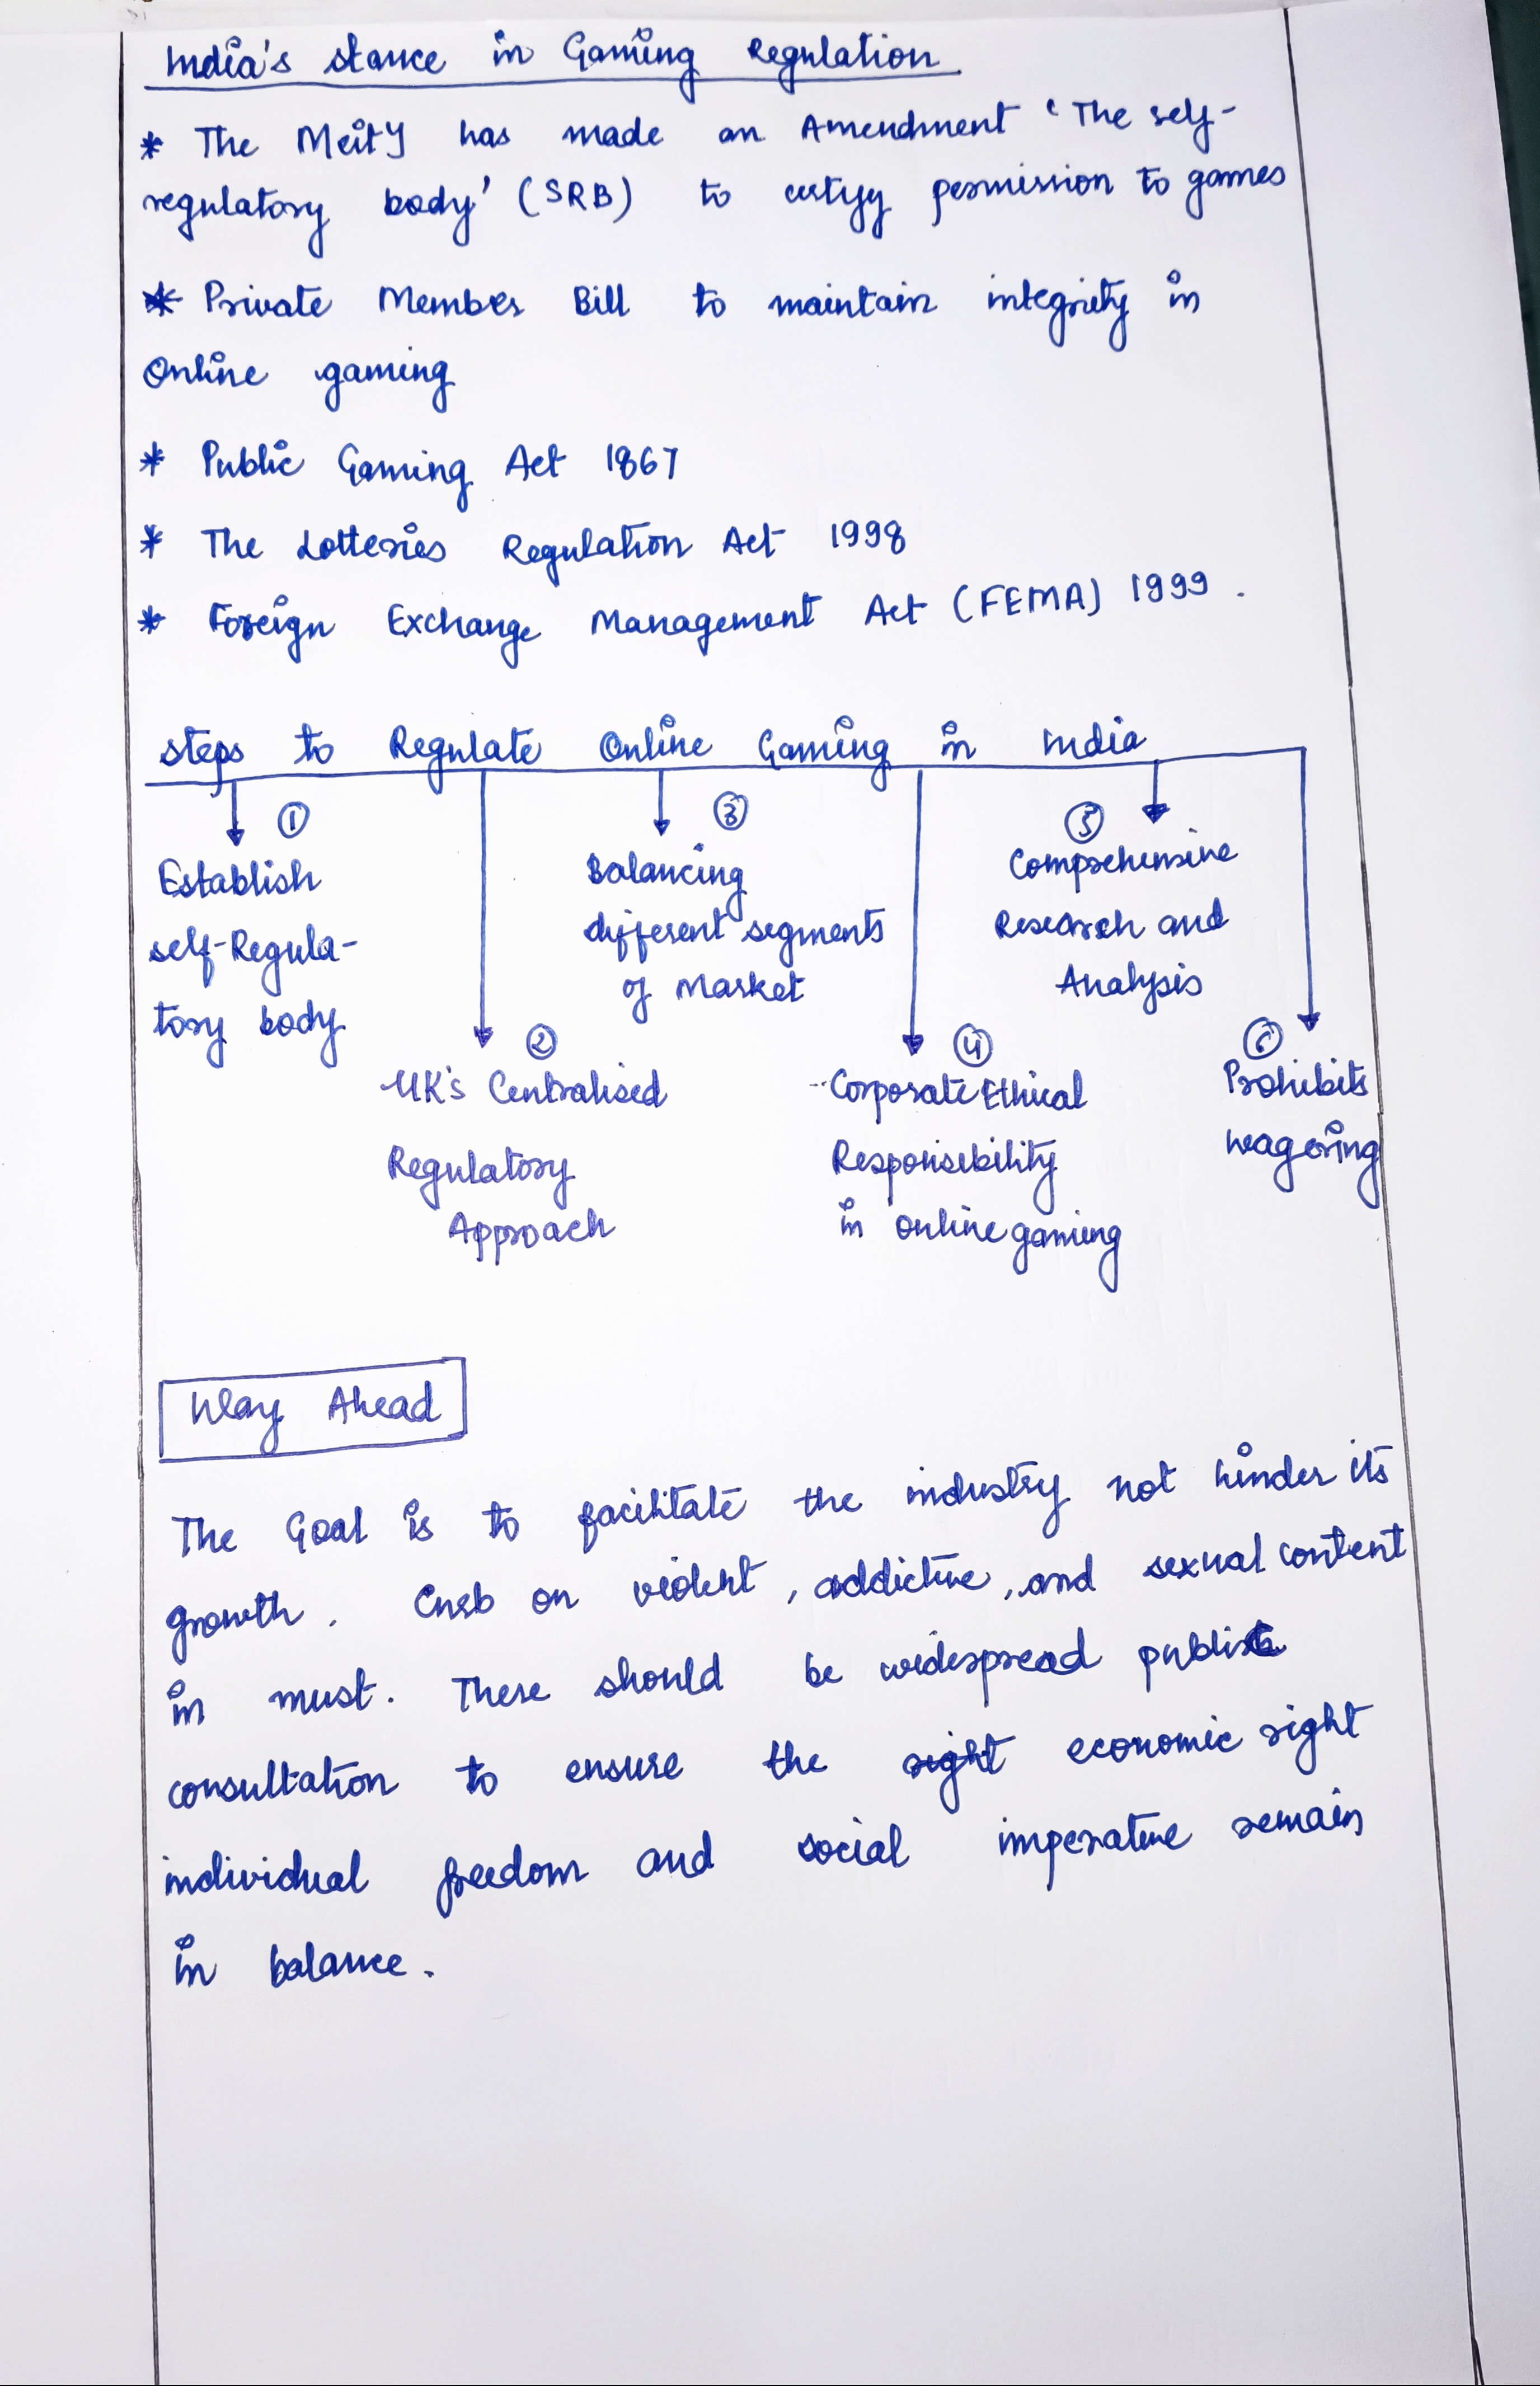 India's stance in Gaming Regulation
* The MeitY has made an Amendment 'The self-
regulatory body' (SRB) to certify permission to games
* Private Member Bill to maintain integrity in
Online gaming
* Public Gaming Act 1867
* The Lotteries Regulation Act 1998
* Foreign Exchange Management Act (FEMA) 1999.
Steps to Regulate Online Gaming in India
①
Establish
self-Regula-
tory body
②
UK's Centralised
Regulatory
Approach
③
Balancing
different segments
of Market
④
Corporate Ethical
Responsibility
in online gaming
⑤
Comprehensive
Research and
Analysis
⑥
Prohibits
wagering
Way Ahead
The Goal is to facilitate the industry not hinder its
growth. Curb on violent, addictive, and sexual content
in must. There should be widespread public
consultation to ensure the economic right
individual freedom and social imperative remain
in balance.